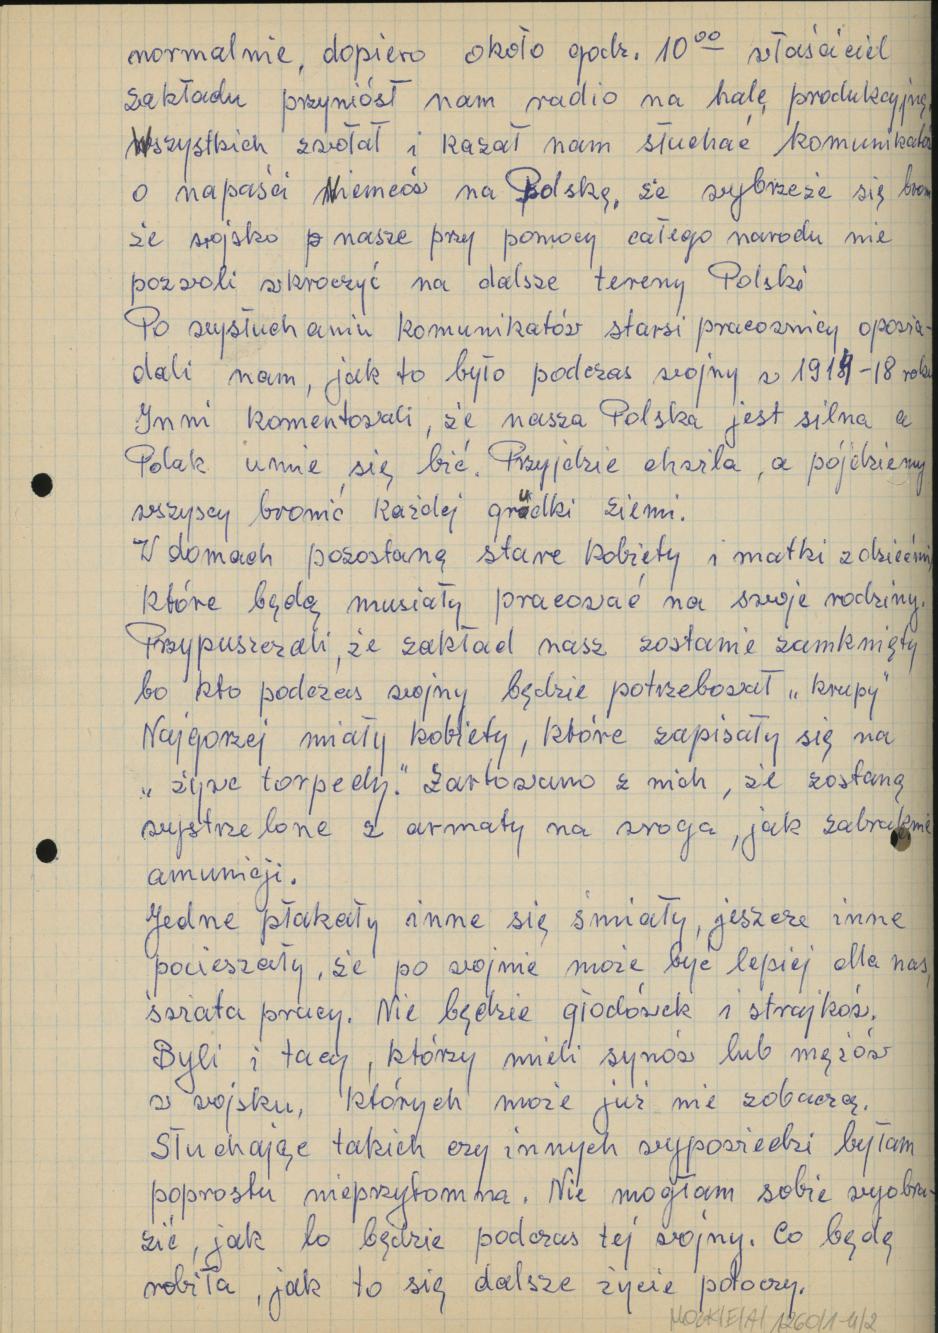 normalnie, dopiero około godz. 10⁰⁰ właściciel
zakładu przyniósł nam radio na halę produkcyjną.
Wszystkich zwołał i kazał nam słuchać komunikatów
o napaści Niemców na Polskę, że wybrzeże się broni
że wojsko nasze przy pomocy całego narodu nie
pozwoli wkroczyć na dalsze tereny Polski
Po wysłuchaniu komunikatów starsi pracownicy opowia-
dali nam, jak to było podczas wojny w 1914-18 roku
Inni komentowali, że nasza Polska jest silna a
Polak umie się bić. Przyjdzie chwila, a pójdziemy
wszyscy bronić każdej grudki ziemi.
W domach pozostaną stare kobiety i matki z dziećmi,
które będą musiały pracować na swoje rodziny.
Przypuszczali, że zakład nasz zostanie zamknięty
bo kto podczas wojny będzie potrzebował „krupy"
Najgorzej miały kobiety, które zapisały się na
„żywe torpedy." Żartowano z nich, że zostaną
wystrzelone z armaty na wroga, jak zabraknie
amunicji.
Jedne płakały inne się śmiały, jeszcze inne
pocieszały, że po wojnie może być lepiej dla nas,
świata pracy. Nie będzie głodówek i strajków.
Byli i tacy, którzy mieli synów lub mężów
w wojsku, których może już nie zobaczą.
Słuchając takich czy innych wypowiedzi byłam
poprostu nieprzytomna. Nie mogłam sobie wyobra-
zić, jak to będzie podczas tej wojny. Co będę
robiła, jak to się dalsze życie potoczy.
MOCK/E/A/1260/1-4/2